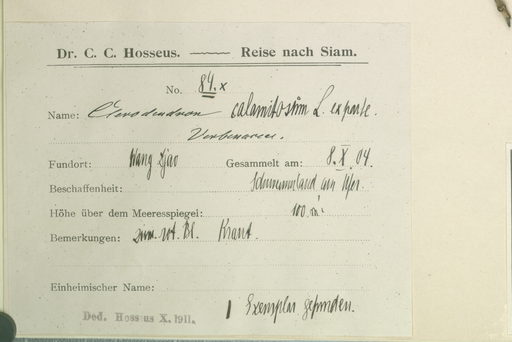 Dr. C. C. Hosseus. Reise nach Siam.
No. 84. x
Name: Clerodendron calamitosum L. ex parte.
Verbenaceae.
Fundort: Wang Djao Gesammelt am: 8. X. 04.
Beschaffenheit: Schwemmland am Ufer.
Höhe über dem Meeresspiegel: 100 m
Bemerkungen: rot. Bl. Kraut.
Einheimischer Name:
1 Exemplar gefunden.
Ded. Hosseus X. 1911.